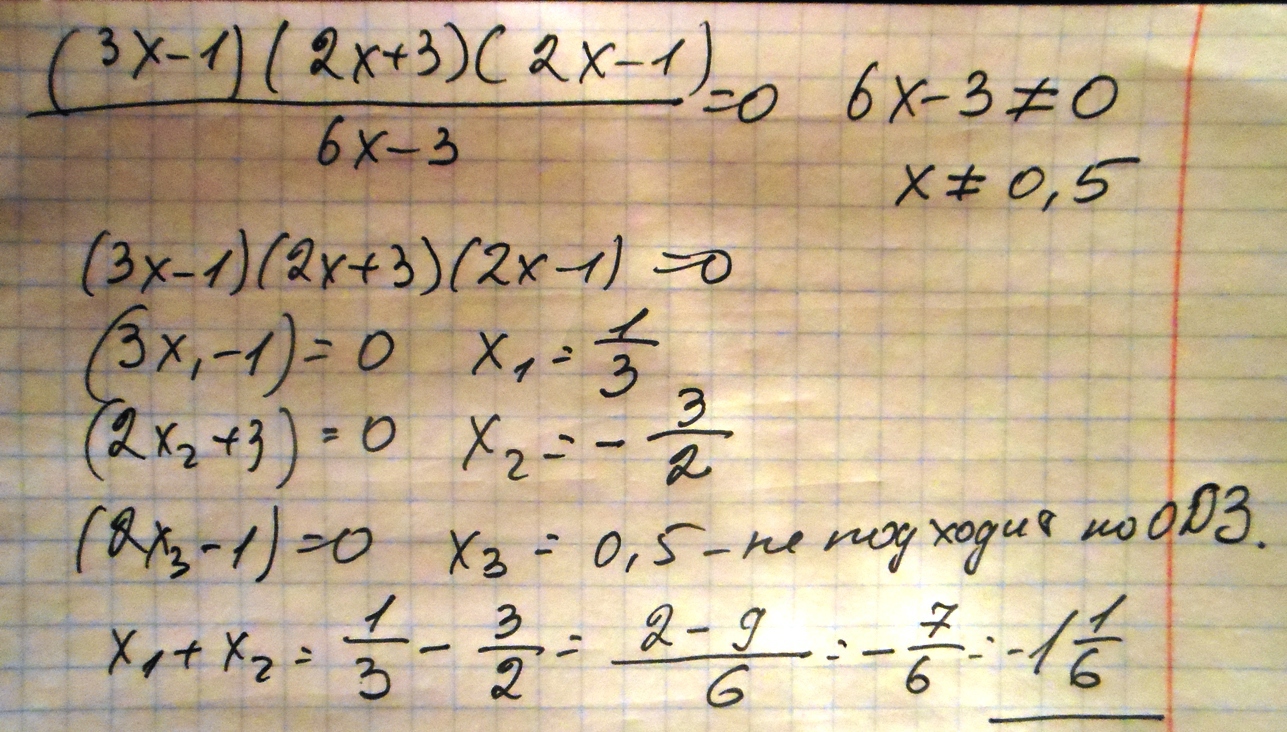 (3x-1)(2x+3)(2x-1)/6x-3=0 6x-3≠0
x≠0,5
(3x-1)(2x+3)(2x-1)=0
(3x₁-1)=0 x₁=1/3
(2x₂+3)=0 x₂=-3/2
(2x₃-1)=0 x₃=0,5-не подходит по ОДЗ.
x₁+x₂=1/3-3/2=2-9/6=-7/6=-1 1/6